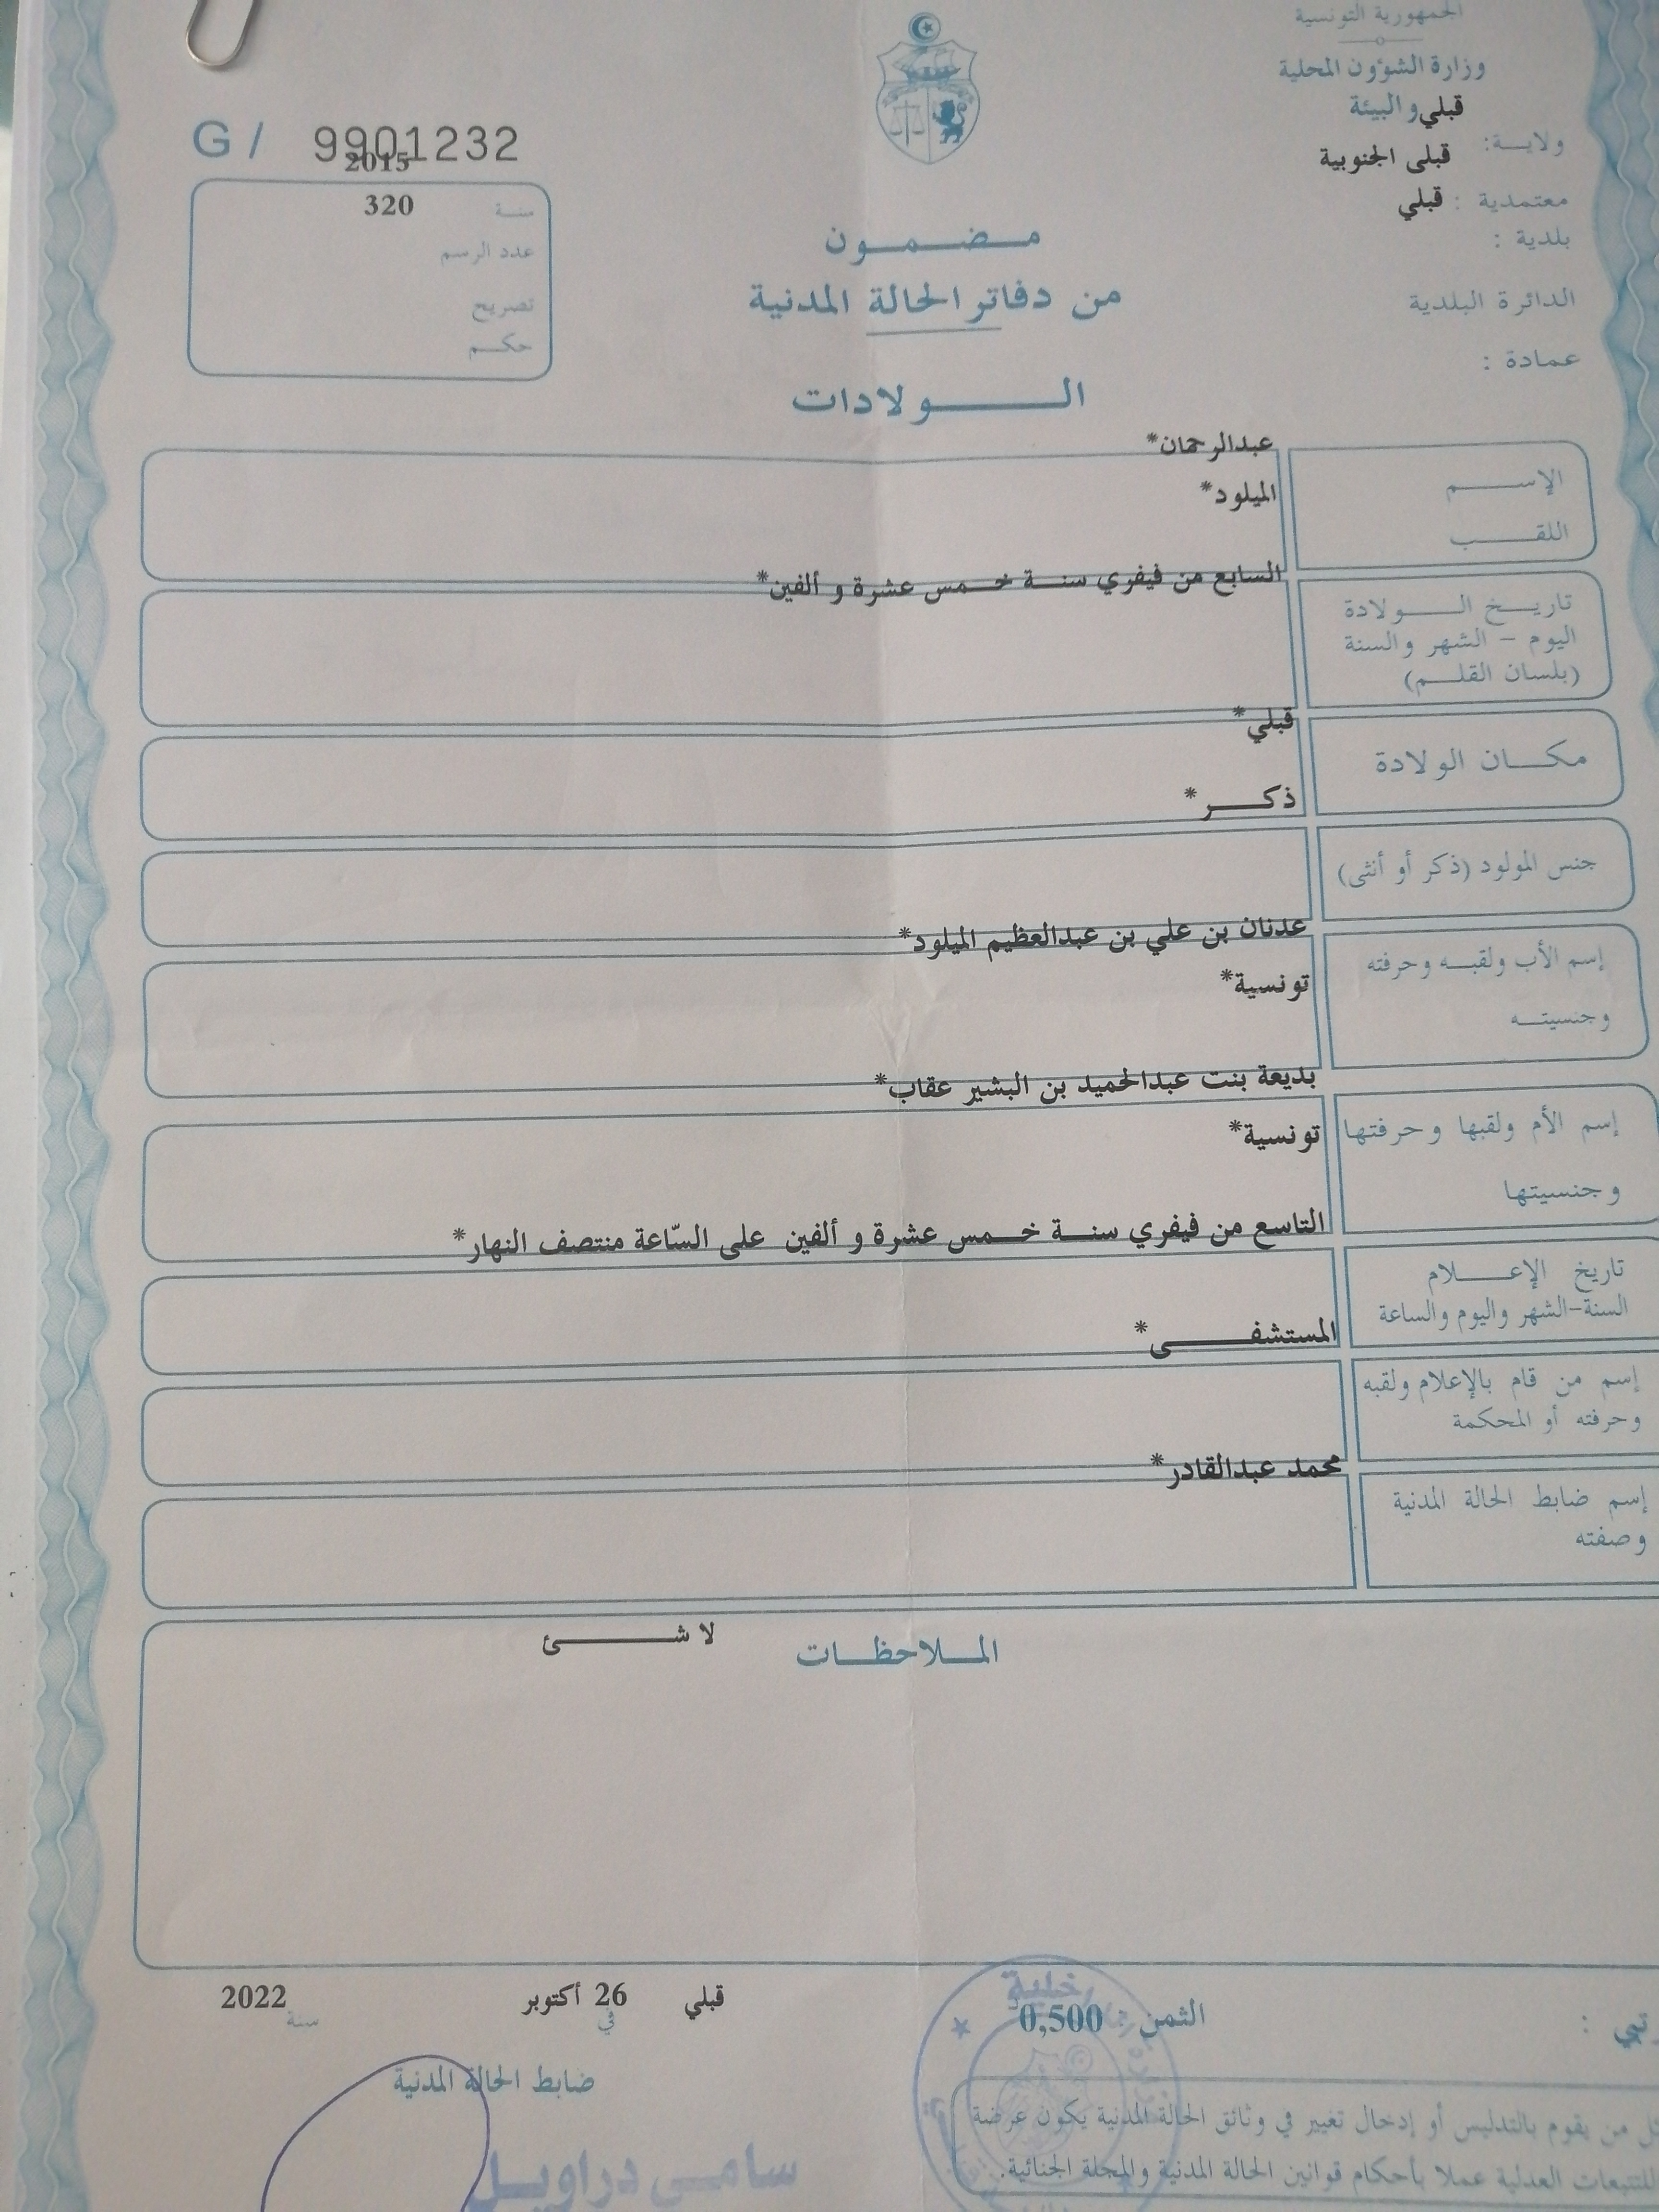 الجمهورية التونسية
وزارة الشؤون المحلية
والبيئة قبلي
ولايــة:
قبلى الجنوبية
معتمدية : قبلي
بلدية :
الدائرة البلدية
عمادة :
G / 9901232
2015
سنـة 320
عدد الرسم
تصريح
حكـم
مـضـمـون
من دفاتر الحالة المدنية
الـولادات
عبدالرحمان*
الإسـم
الميلود*
اللقـب
السابع من فيفري سنـة خـمس عشرة و ألفين*
تاريـخ الـولادة
اليوم – الشهر والسنة
(بلسان القلـم)
قبلي*
مكـان الولادة
ذكـر*
جنس المولود (ذكر أو أنثى)
عدنان بن علي بن عبدالعظيم الميلود*
إسم الأب ولقبـه وحرفته
تونسية*
وجنسيتـه
بديعة بنت عبدالحميد بن البشير عقاب*
إسم الأم ولقبها وحرفتها
تونسية*
وجنسيتها
التاسع من فيفري سنـة خـمس عشرة و ألفين على السّاعة منتصف النهار*
تاريخ الإعـلام
السنة-الشهر واليوم والساعة
المستشفـى*
إسم من قام بالإعلام ولقبه
وحرفته أو المحكمة
محمد عبدالقادر*
إسم ضابط الحالة المدنية
وصفته
الملاحظـات
لا شـئ
قبلي في 26 أكتوبر سنة 2022
الثمن : 0,500د
ضابط الحالة المدنية
سامي دراويل
من يقوم بالتدليس أو إدخال تغيير في وثائق الحالة المدنية يكون عرضة
للتتبعات العدلية عملا بأحكام قوانين الحالة المدنية والمجلة الجنائية.